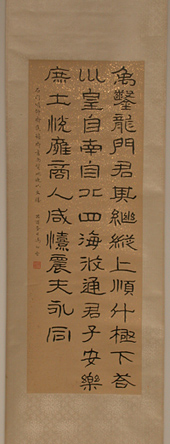 禹鑿龍門君其繼縱上順斗極下答
巛皇自南自北四海攸通君子安樂
庶士悅雍商人咸憘農夫永同